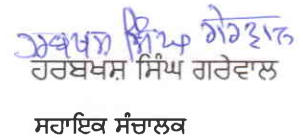 ਹਰਬਖਸ਼ ਸਿੰਘ ਗਰੇਵਾਲ
ਹਰਬਖਸ਼ ਸਿੰਘ ਗਰੇਵਾਲ
ਸਹਾਇਕ ਸੰਚਾਲਕ